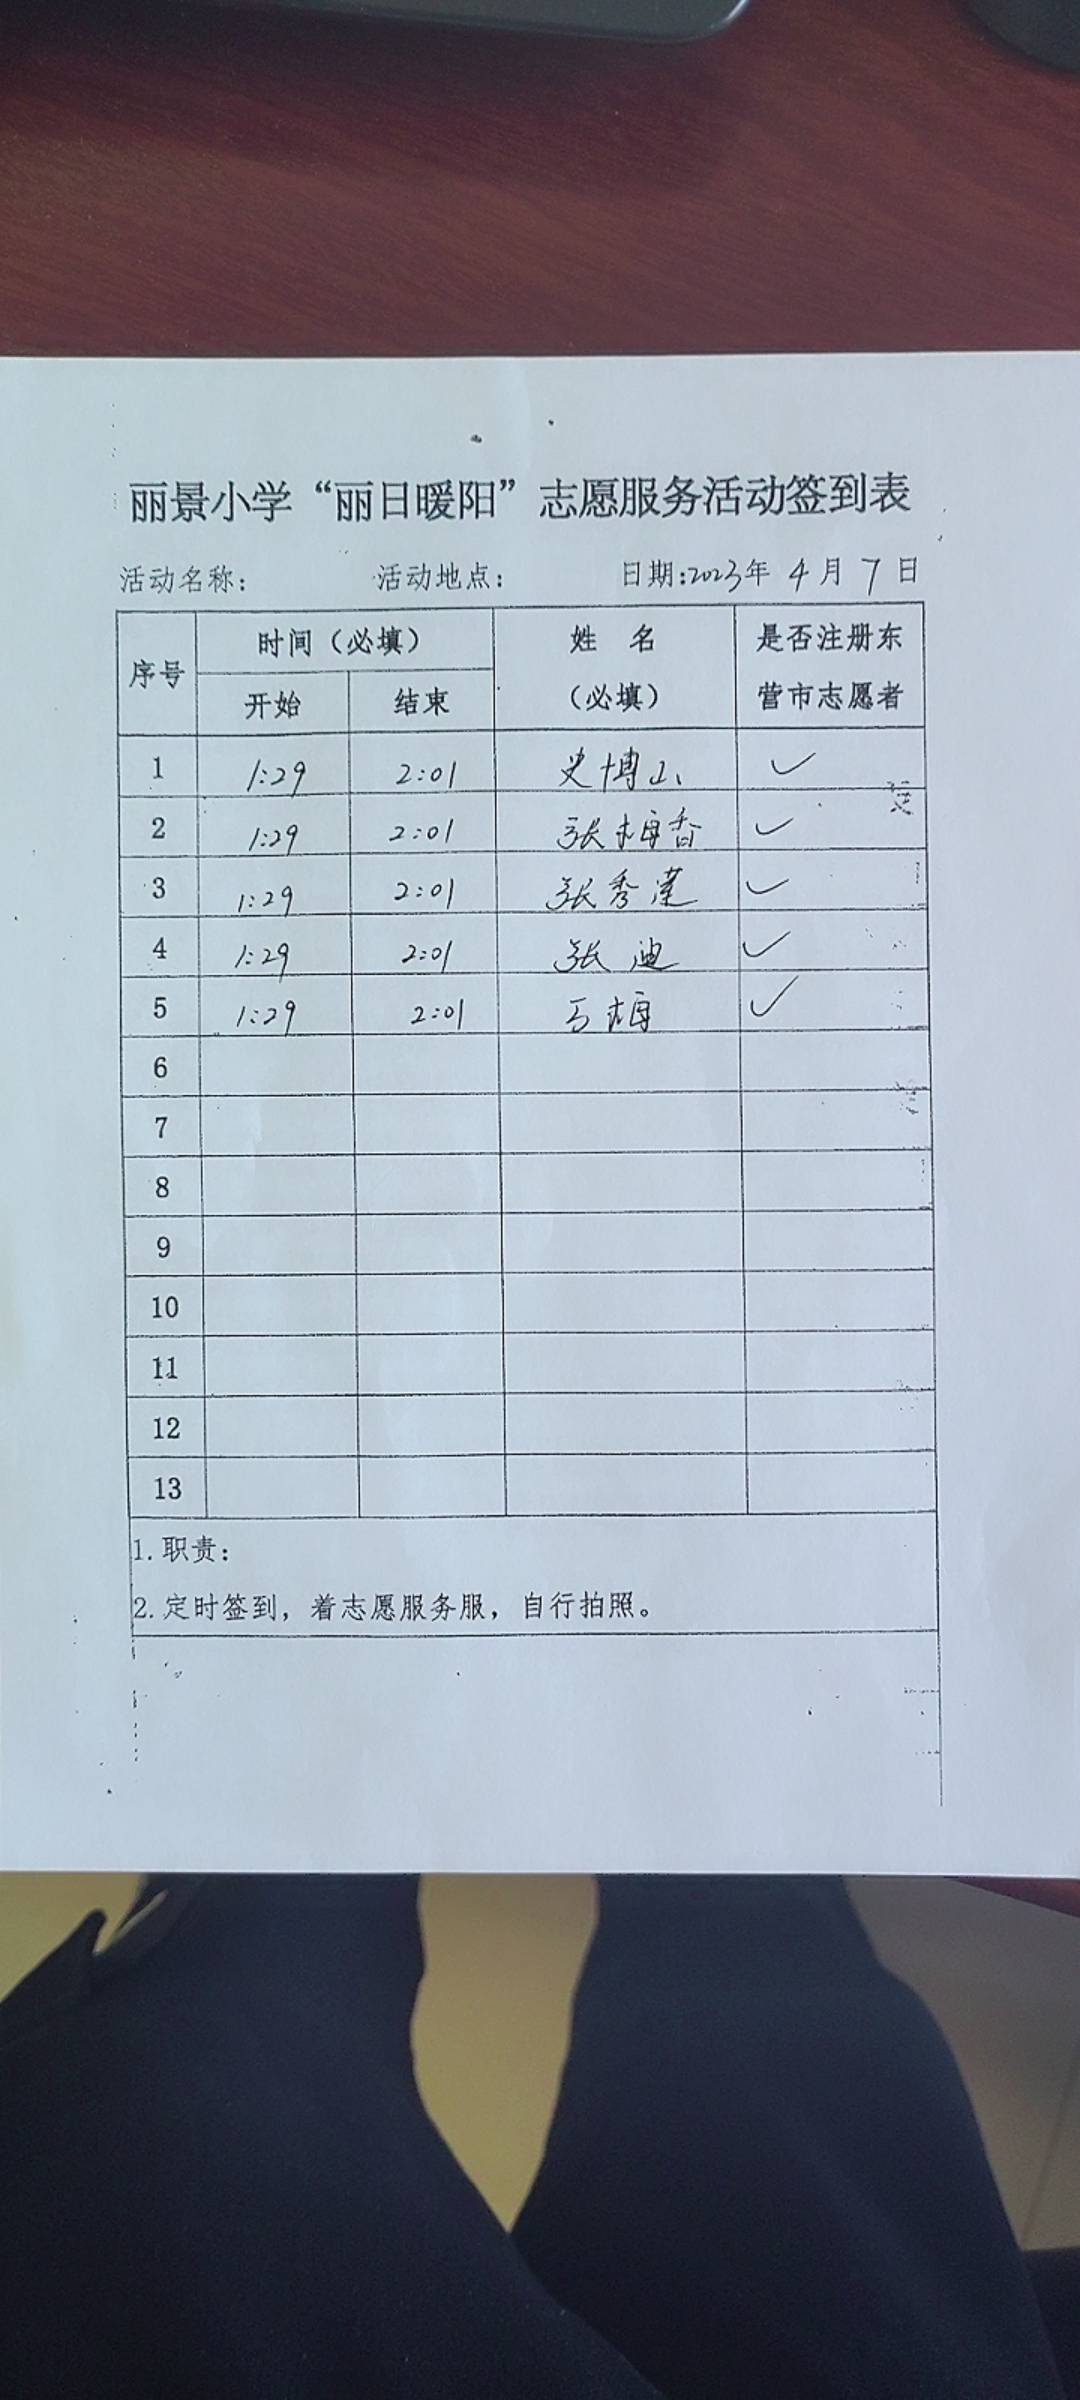 丽景小学“丽日暖阳”志愿服务活动签到表
活动名称： 活动地点： 日期:2023年 4 月 7 日
序号 时间（必填） 姓 名 （必填） 是否注册东营市志愿者
开始 结束
1 1:29 2:01 史博山 ✓
2 1:29 2:01 张梅香 ✓
3 1:29 2:01 张秀莲 ✓
4 1:29 2:01 张迪 ✓
5 1:29 2:01 马梅 ✓
6
7
8
9
10
11
12
13
1.职责：
2.定时签到，着志愿服务服，自行拍照。